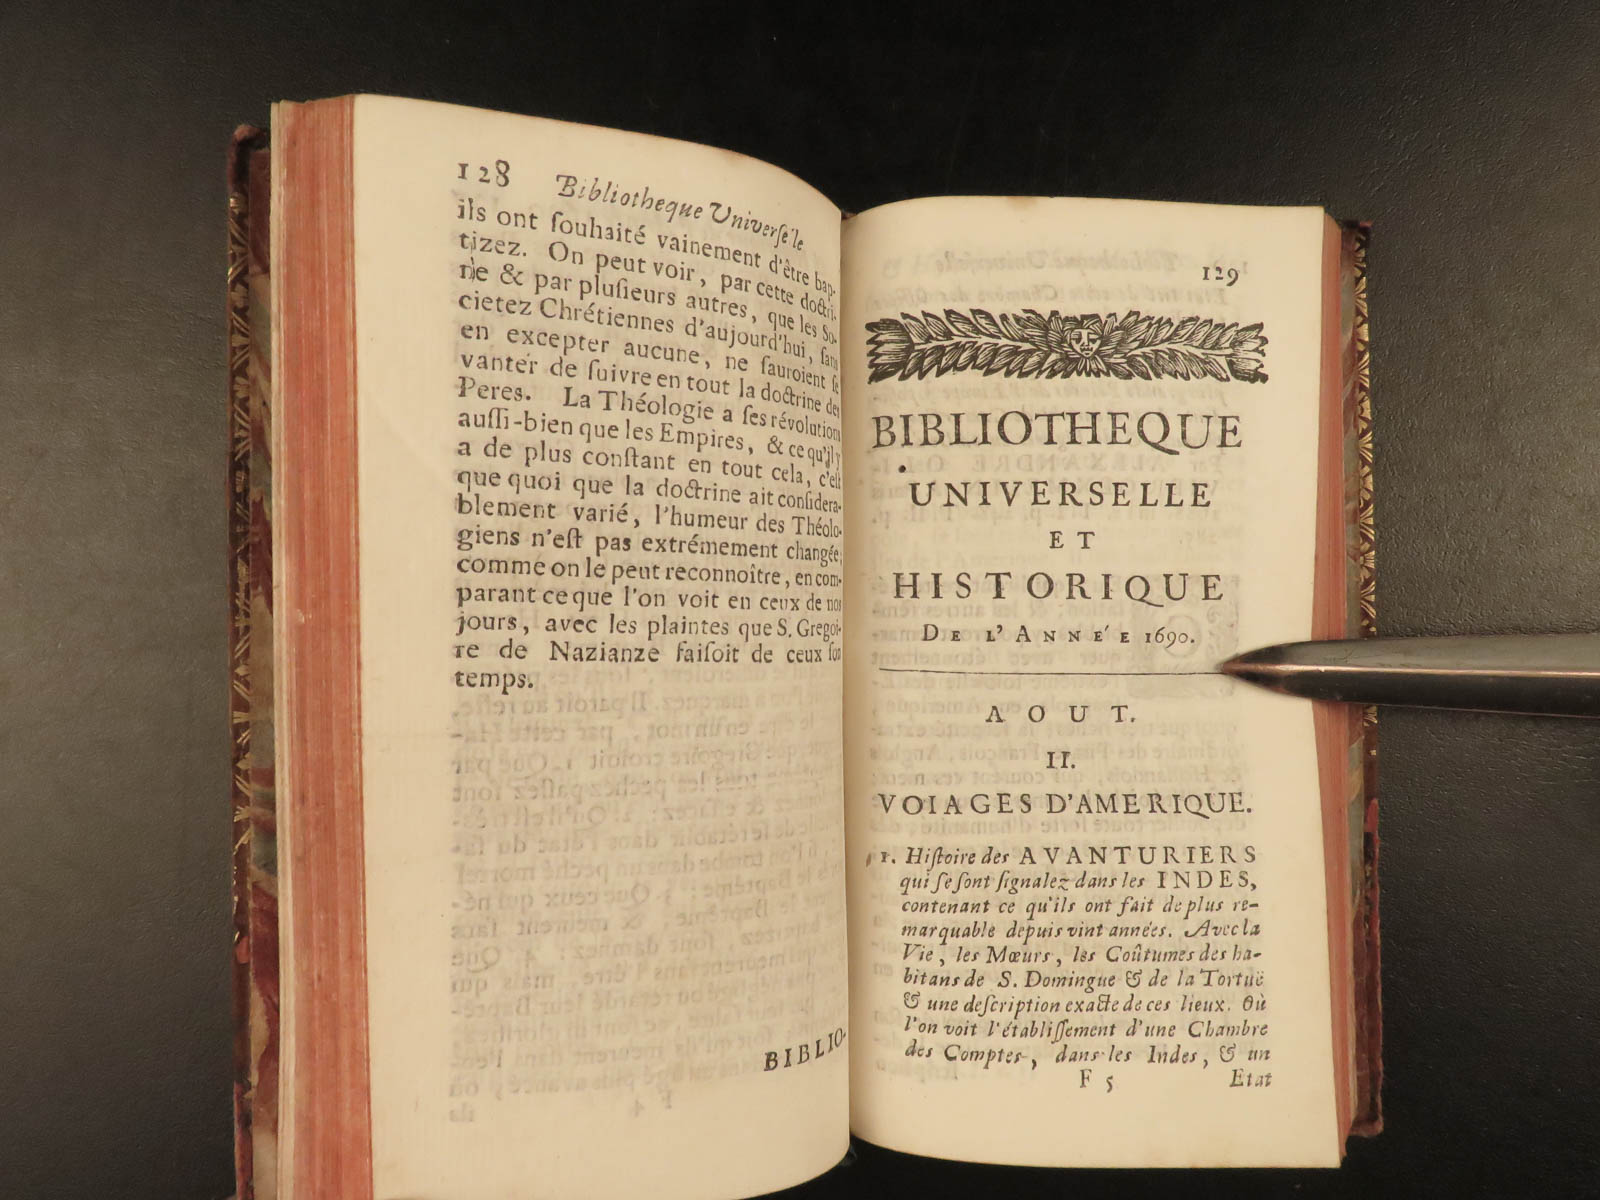 128 Bibliotheque Universelle
ils ont ſouhaité vainement d'être bap-
tizez. On peut voir, par cette doctri-
ne & par pluſieurs autres, que les So-
cietez Chrétiennes d'aujourd'hui, ſans
en excepter aucune, ne ſauroient ſe
vanter de ſuivre en tout la doctrine des
Peres. La Théologie a ſes révolutions
auſſi-bien que les Empires, & ce qu'il y
a de plus conſtant en tout cela, c'eſt
que quoi que la doctrine ait conſidera-
blement varié, l'humeur des Théolo-
giens n'eſt pas extrémement changée;
comme on le peut reconnoître, en com-
parant ce que l'on voit en ceux de nos
jours, avec les plaintes que S. Gregoi-
re de Nazianze faiſoit de ceux ſon
temps.
BIBLIO-
129
BIBLIOTHEQUE
UNIVERSELLE
ET
HISTORIQUE
DE L'ANNÉE 1690.
AOUT.
II.
VOIAGES D'AMERIQUE.
1. Hiſtoire des AVANTURIERS
qui ſe ſont ſignalez dans les INDES,
contenant ce qu'ils ont fait de plus re-
marquable depuis vint années. Avec la
Vie, les Mœurs, les Coûtumes des ha-
bitans de S. Domingue & de la Tortuë
& une deſcription exacte de ces lieux. Où
l'on voit l'établiſſement d'une Chambre
des Comptes, dans les Indes, & un
F 5 Etat